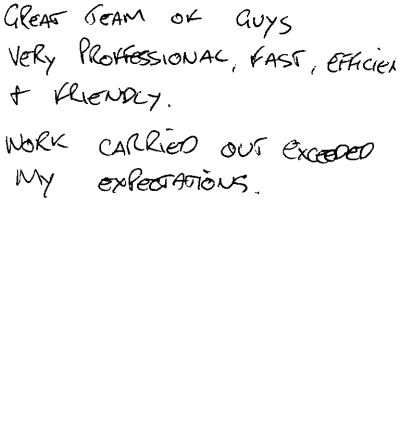 GREAT TEAM OF GUYS
VERY PROFFESSIONAL, FAST, EFFICIEN
& FRIENDLY.
WORK CARRIED OUT EXCEEDED
MY EXPECTATIONS.